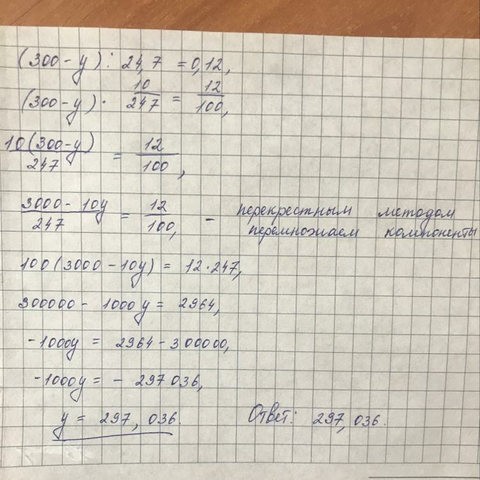 (300 - y) : 24,7 = 0,12,
(300 - y) · 10/247 = 12/100,
10(300-y)/247 = 12/100,
3000 - 10y/247 = 12/100, - перекрестным методом
перемножаем компоненты
100(3000 - 10y) = 12·247,
300000 - 1000y = 2964,
-1000y = 2964 - 300000,
-1000y = - 297036,
y = 297,036. Ответ: 297,036.